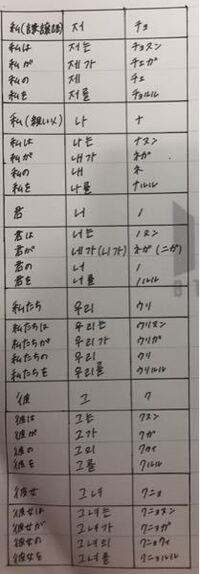 私(謙譲語) 저 チョ
私は 저는 チョヌン
私が 제가 チェガ
私の 제 チェ
私を 저를 チョルル
私(親しい人) 나 ナ
私は 나는 ナヌン
私が 내가 ネガ
私の 내 ネ
私を 나를 ナルル
君 너 ノ
君は 너는 ノヌン
君が 네가(니가) ネガ(ニガ)
君の 너 ノ
君を 너를 ノルル
私たち 우리 ウリ
私たちは 우리는 ウリヌン
私たちが 우리가 ウリガ
私たちの 우리 ウリ
私たちを 우리를 ウリルル
彼 그 ク
彼は 그는 クヌン
彼が 그가 クガ
彼の 그의 クウィ
彼を 그를 クルル
彼女 그녀 クニョ
彼女は 그녀는 クニョヌン
彼女が 그녀가 クニョガ
彼女の 그녀의 クニョウィ
彼女を 그녀를 クニョルル